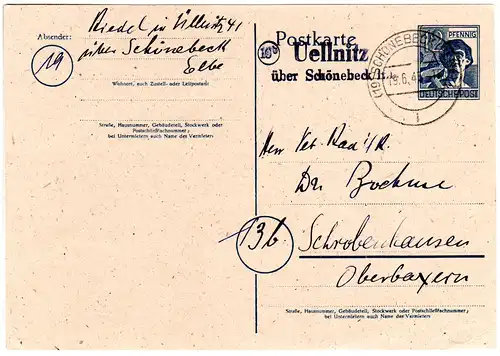 Absender:
Riedel in Üllnitz 41
über Schönebeck
Elbe
19
Wohnort, auch Zustell- oder Leitpostamt
Straße, Hausnummer, Gebäudeteil, Stockwerk oder
Postschließfachnummer;
bei Untermietern auch Name des Vermieters
Postkarte
Uellnitz
über Schönebeck
(19) SCHÖNEBECK
PFENNIG
DEUTSCHE POST
Herrn Vet. Rat i/R.
Dr.
13b Schrobenhausen
Oberbayern
Straße, Hausnummer, Gebäudeteil, Stockwerk oder Postschließfachnummer;
bei Untermietern auch Name des Vermieters